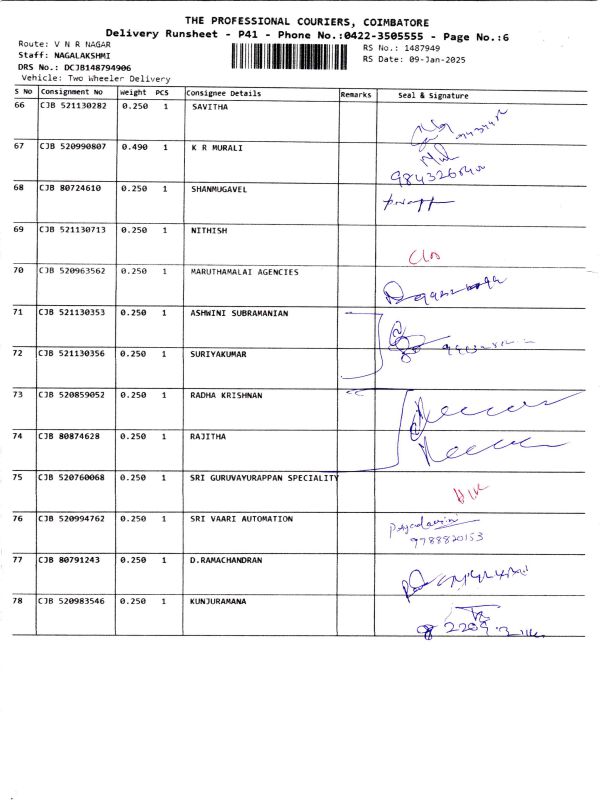 THE PROFESSIONAL COURIERS, COIMBATORE
Delivery Runsheet - P41 - Phone No.:0422-3505555 - Page No.:6
Route: V N R NAGAR
Staff: NAGALAKSHMI
DRS No.: DCJB148794906
Vehicle: Two Wheeler Delivery
RS No.: 1487949
RS Date: 09-Jan-2025
S No Consignment No Weight PCS Consignee Details Remarks Seal & Signature
66 CJB 521130282 0.250 1 SAVITHA
67 CJB 520990807 0.490 1 K R MURALI
68 CJB 80724610 0.250 1 SHANMUGAVEL
69 CJB 521130713 0.250 1 NITHISH
70 CJB 520963562 0.250 1 MARUTHAMALAI AGENCIES
71 CJB 521130353 0.250 1 ASHWINI SUBRAMANIAN
72 CJB 521130356 0.250 1 SURIYAKUMAR
73 CJB 520859052 0.250 1 RADHA KRISHNAN
74 CJB 80874628 0.250 1 RAJITHA
75 CJB 520760068 0.250 1 SRI GURUVAYURAPPAN SPECIALITY
76 CJB 520994762 0.250 1 SRI VAARI AUTOMATION
9788820153
77 CJB 80791243 0.250 1 D.RAMACHANDRAN
78 CJB 520983546 0.250 1 KUNJURAMANA